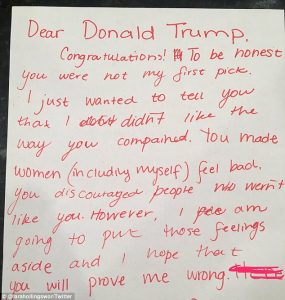 Dear Donald Trump,
Congratulations! To be honest
you were not my first pick.
I just wanted to tell you
that I didn't like the
way you compained. You made
women (including myself) feel bad.
you discouraged people who weren't
like you. However, I am
going to put those feelings
aside and I hope that
you will prove me wrong.